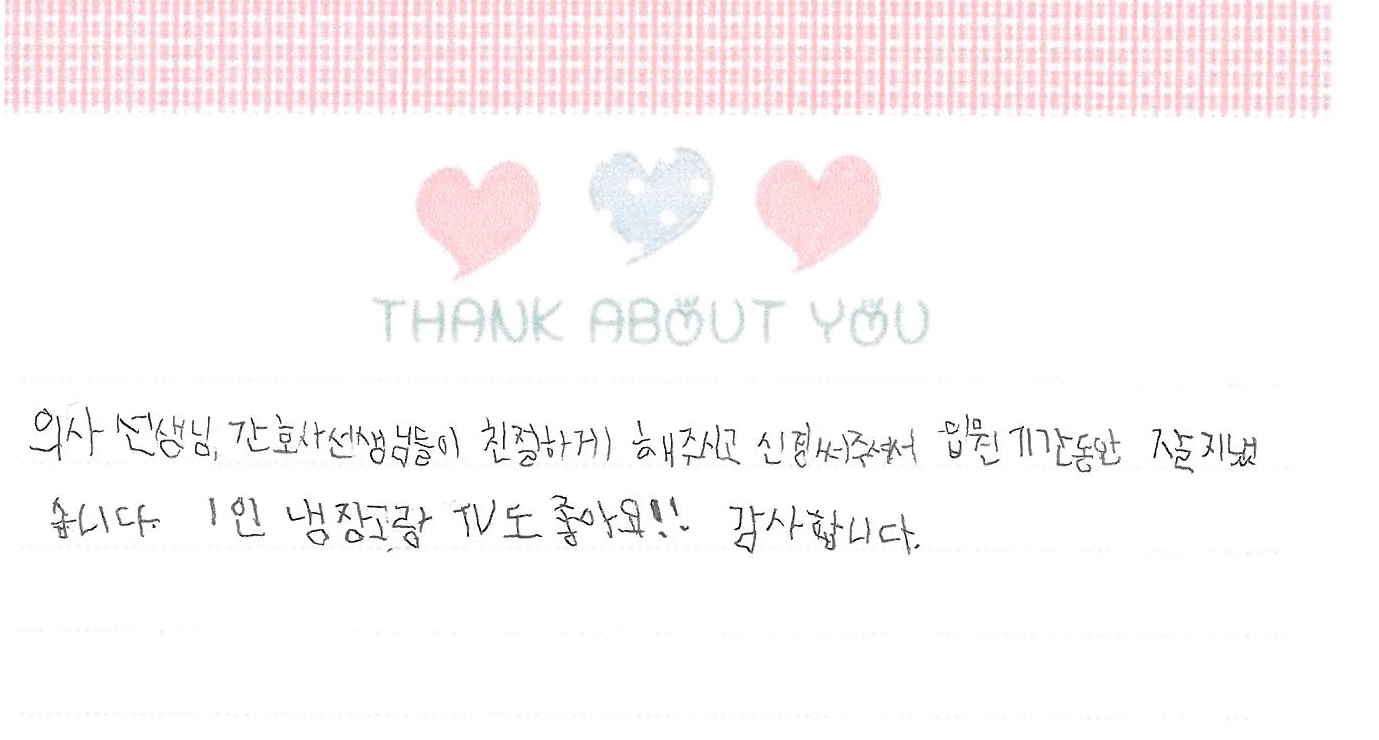 THANK ABOUT YOU
의사 선생님, 간호사선생님들이 친절하게 해주시고 신경써주셔서 입원 기간동안 잘 지냈
습니다. 1인 냉장고랑 TV도 좋아요!! 감사합니다.